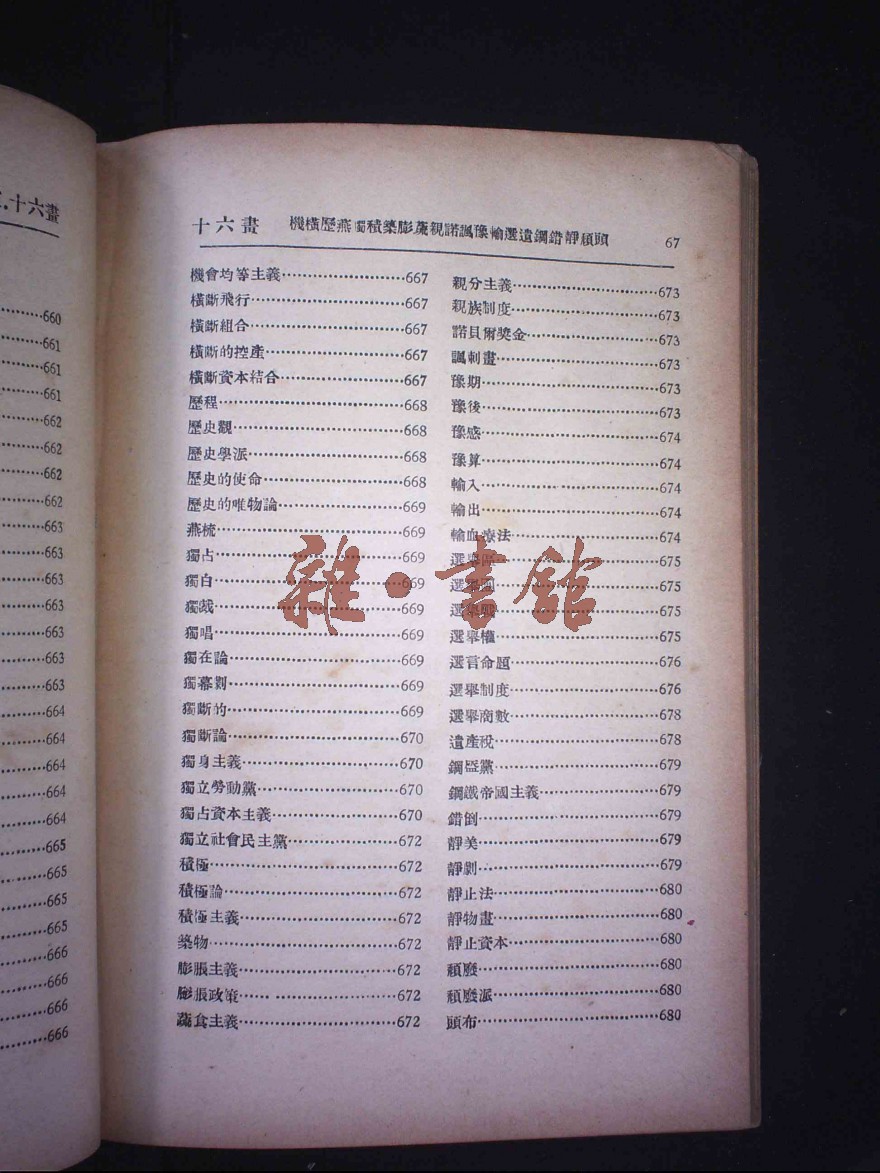 十六畫
660
661
661
661
662
662
662
662
663
663
663
663
663
663
663
664
664
664
664
664
665
665
665
665
666
666
666
666
十六畫 機橫歷燕獨積築膨蔬親諾諷豫輸選遺鋼錯靜頹頭 67
機會均等主義 667
橫斷飛行 667
橫斷組合 667
橫斷的控產 667
橫斷資本結合 667
歷程 668
歷史觀 668
歷史學派 668
歷史的使命 668
歷史的唯物論 669
燕梳 669
獨占 669
獨白 669
獨裁 669
獨唱 669
獨在論 669
獨幕劇 669
獨斷的 669
獨斷論 670
獨身主義 670
獨立勞動黨 670
獨占資本主義 670
獨立社會民主黨 672
積極 672
積極論 672
積極主義 672
築物 672
膨脹主義 672
膨脹政策 672
蔬食主義 672
親分主義 673
親族制度 673
諾貝爾獎金 673
諷刺畫 673
豫期 673
豫後 673
豫感 674
豫算 674
輸入 674
輸出 674
輸血療法 674
選舉區 675
選舉團 675
選舉 675
選舉權 675
選言命題 676
選舉制度 676
選舉商數 678
遺產稅 678
鋼盔黨 679
鋼鐵帝國主義 679
錯倒 679
靜美 679
靜劇 679
靜止法 680
靜物畫 680
靜止資本 680
頹廢 680
頹廢派 680
頭布 680
雜·書館